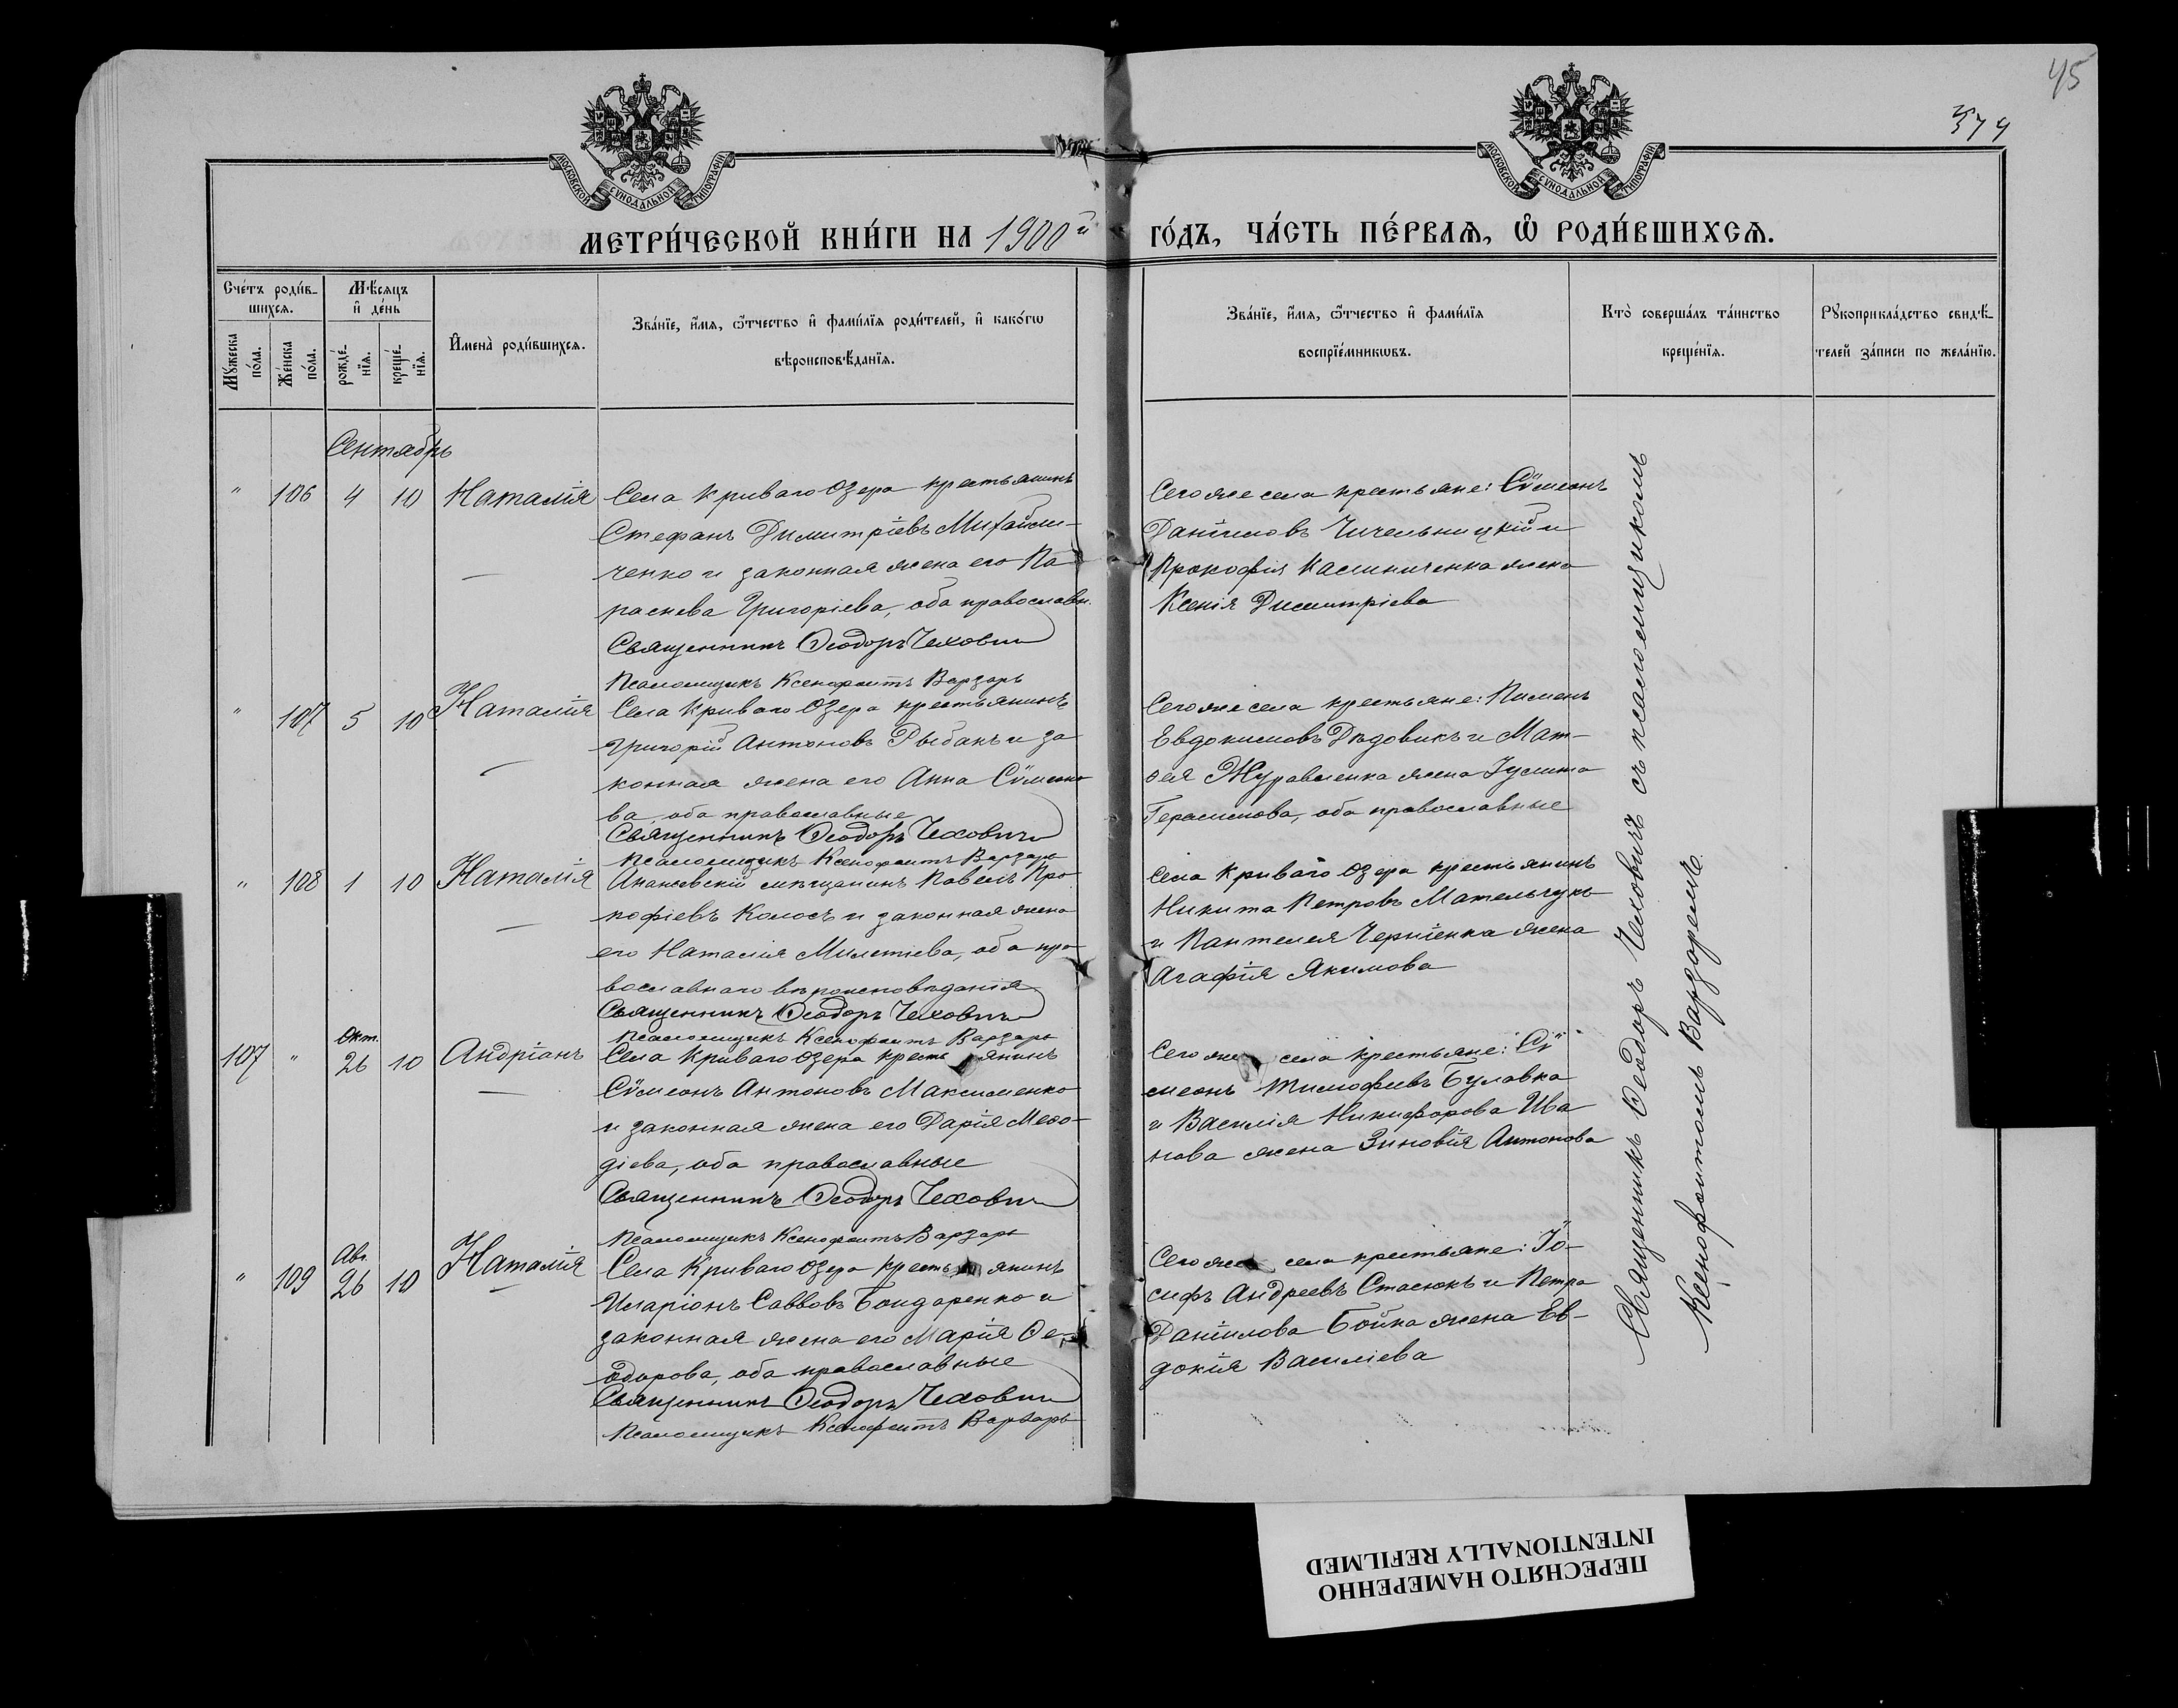 45
374
МОСКОВСКОЙ СѴНОДАЛЬНОЙ ТИПОГРАФІИ
МОСКОВСКОЙ СѴНОДАЛЬНОЙ ТИПОГРАФІИ
МЕТРИ́ЧЕСКОЙ КНИ́ГИ НА 1900й ГО́ДЪ, ЧА́СТЬ ПЕ́РВАѦ, Ѡ҆ РОДИ́ВШИХСѦ.
Сче́тъ роди́в-
шихсѧ.
Мꙋ́жеска по́ла.
Же́нска по́ла.
Мѣ́сѧцъ
и҆ де́нь
рожде́-нїѧ.
креще́-нїѧ.
И҆мена̀ роди́вшихсѧ.
Зва́нїе, и҆́мѧ, ѻ҆́тчество и҆ фами́лїѧ роди́телей, и҆ како́гѡ
вѣроисповѣ́данїѧ.
Зва́нїе, и҆́мѧ, ѻ҆́тчество и҆ фами́лїѧ
воспрїе́мникѡвъ.
Кто̀ соверша́лъ та́инство
креще́нїѧ.
Рꙋкоприкла́дство свидѣ́-
телей за́писи по жела́нїю.
Сентябрь
" 106 4 10 Наталія
Села Криваго Озера крестьянинъ
Стефанъ Димитріевъ Михайли-
ченко и законная жена его Па-
раскева Григоріева, оба православн.
Священникъ Ѳеодоръ Чехович
Псаломщикъ Ксенофонтъ Варзарь
Сего же села крестьяне: Сѵмеонъ
Даніиловъ Чичельницкій и
Прокофія Калиниченка жена
Ксенія Димитріева
" 107 5 10 Наталія
Села Криваго Озера крестьянинъ
Григорій Антоновъ Рыбакъ и за
конная жена его Анна Сѵмеоно
ва, оба православные
Священникъ Ѳеодоръ Чехович
Псаломщикъ Ксенофонтъ Варзарь
Сего же села крестьяне: Пименъ
Евдокимовъ Дѣдовикъ и Мат-
ѳея Журавленка жена Іулита
Герасимова, оба православные
" 108 1 10 Наталія
Ананьевскій мѣщанинъ Павелъ Про
кофіевъ Колосъ и законная жена
его Наталія Милетіева, оба пра
вославнаго вѣроисповѣданія
Священникъ Ѳеодоръ Чехович
Псаломщикъ Ксенофонтъ Варзарь
Села Криваго Озера крестьянинъ
Никита Петровъ Мательчукъ
и Пантелея Черніенка жена
Агафія Якимова
107 " Окт. 26 10 Андріанъ
Села Криваго Озера крестьянинъ
Сѵмеонъ Антоновъ Максименко
и законная жена его Дарія Меѳо-
діева, оба православные
Священникъ Ѳеодоръ Чехович
Псаломщикъ Ксенофонтъ Варзарь
Сего же села крестьяне: Сѵ
меонъ Тимофѣевъ Булавка
и Василія Никифорова Ива
нова жена Зиновія Антонова
" 109 Авг. 26 10 Наталія
Села Криваго Озера крестьянинъ
Иларіонъ Саввовъ Бондаренко и
законная жена его Марія Ѳе-
одорова, оба православные
Священникъ Ѳеодоръ Чехович
Псаломщикъ Ксенофонтъ Варзарь
Сего же села крестьяне: Іо-
сифъ Андреевъ Стасюкъ и Петра
Даніилова Бойка жена Ев-
докія Василіева
Священникъ Ѳеодоръ Чеховичъ съ псаломщикомъ
Ксенофонтомъ Варзаремъ.
ПЕРЕСНЯТО НАМЕРЕННО
INTENTIONALLY REFILMED